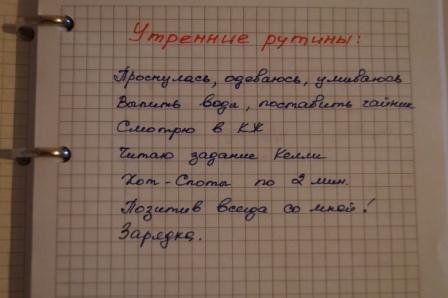 Утренние рутины:
Проснулась, одеваюсь, умиваюсь
Выпить воды, поставить чайник
Смотрю в КЖ
Читаю задание Келли
Хот-Споты по 2 мин.
Позитив всегда со мной!
Зарядка.